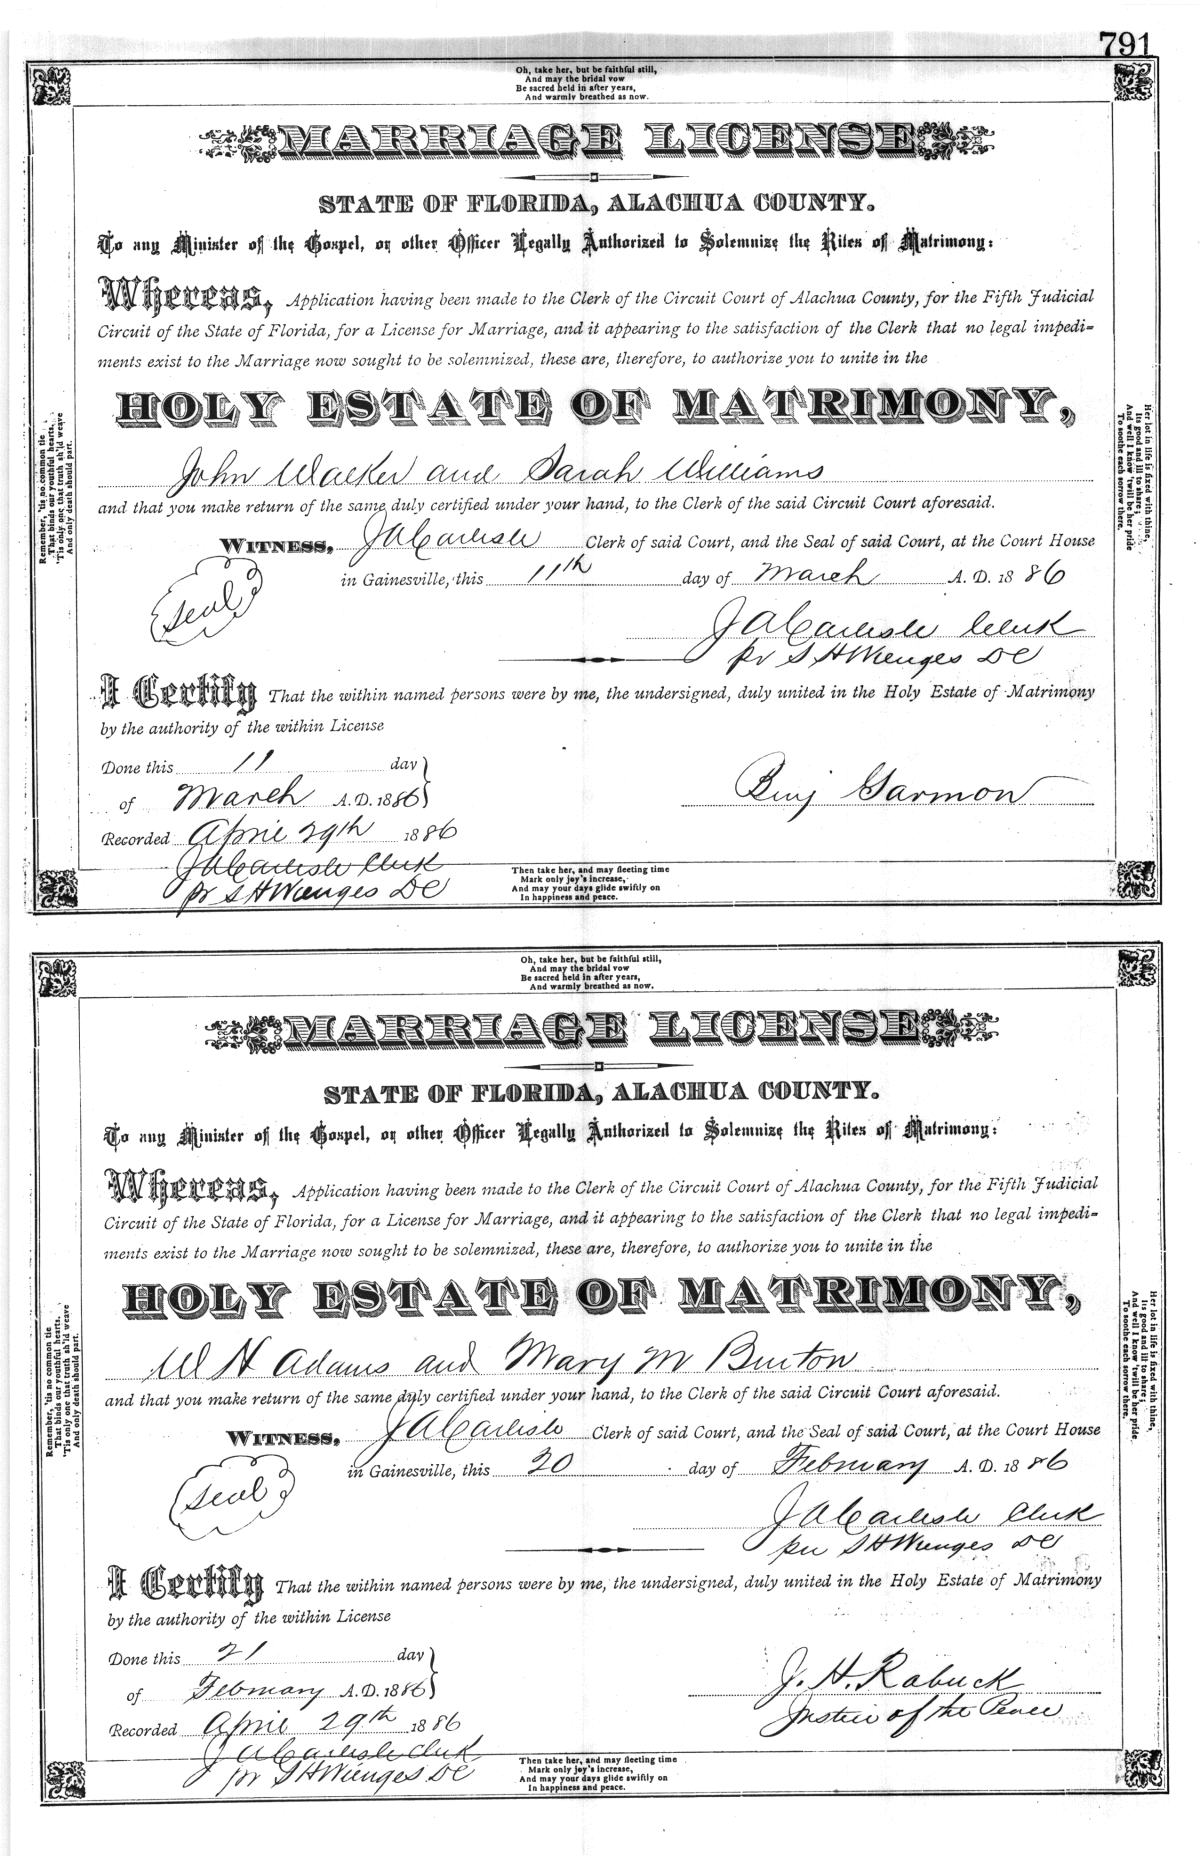 791
Oh, take her, but be faithful still,
And may the bridal vow
Be sacred held in after years,
And warmly breathed as now.
MARRIAGE LICENSE
STATE OF FLORIDA, ALACHUA COUNTY.
To any Minister of the Gospel, or other Officer Legally Authorized to Solemnize the Rites of Matrimony:
Whereas, Application having been made to the Clerk of the Circuit Court of Alachua County, for the Fifth Judicial
Circuit of the State of Florida, for a License for Marriage, and it appearing to the satisfaction of the Clerk that no legal impedi-
ments exist to the Marriage now sought to be solemnized, these are, therefore, to authorize you to unite in the
HOLY ESTATE OF MATRIMONY,
John Walker and Sarah Williams
and that you make return of the same duly certified under your hand, to the Clerk of the said Circuit Court aforesaid.
WITNESS, J A Carlisle Clerk of said Court, and the Seal of said Court, at the Court House
in Gainesville, this 11th day of March A. D. 1886
Seal
J A Carlisle Clerk
pr S H Wienges DC
I Certify That the within named persons were by me, the undersigned, duly united in the Holy Estate of Matrimony
by the authority of the within License
Done this 11 day
of March A. D. 1886
Benj Garmon
Recorded April 29th 1886
J A Carlisle Clerk
pr S H Wienges DC
Remember, 'tis no common tie
That binds our youthful hearts,
'Tis only one that truth sh'ld weave
And only death should part.
Her lot in life is fixed with thine,
Its good and ill to share;
And well I know 'twill be her pride
To soothe each sorrow there.
Then take her, and may fleeting time
Mark only joy's increase,
And may your days glide swiftly on
In happiness and peace.
Oh, take her, but be faithful still,
And may the bridal vow
Be sacred held in after years,
And warmly breathed as now.
MARRIAGE LICENSE
STATE OF FLORIDA, ALACHUA COUNTY.
To any Minister of the Gospel, or other Officer Legally Authorized to Solemnize the Rites of Matrimony:
Whereas, Application having been made to the Clerk of the Circuit Court of Alachua County, for the Fifth Judicial
Circuit of the State of Florida, for a License for Marriage, and it appearing to the satisfaction of the Clerk that no legal impedi-
ments exist to the Marriage now sought to be solemnized, these are, therefore, to authorize you to unite in the
HOLY ESTATE OF MATRIMONY,
W H Adams and Mary M Burton
and that you make return of the same duly certified under your hand, to the Clerk of the said Circuit Court aforesaid.
WITNESS, J A Carlisle Clerk of said Court, and the Seal of said Court, at the Court House
in Gainesville, this 20 day of February A. D. 1886
Seal
J A Carlisle Clerk
per S H Wienges DC
I Certify That the within named persons were by me, the undersigned, duly united in the Holy Estate of Matrimony
by the authority of the within License
Done this 21 day
of February A. D. 1886
J. H. Rabuck
Justice of the Peace
Recorded April 29th 1886
J A Carlisle Clerk
pr S H Wienges DC
Remember, 'tis no common tie
That binds our youthful hearts,
'Tis only one that truth sh'ld weave
And only death should part.
Her lot in life is fixed with thine,
Its good and ill to share;
And well I know 'twill be her pride
To soothe each sorrow there.
Then take her, and may fleeting time
Mark only joy's increase,
And may your days glide swiftly on
In happiness and peace.